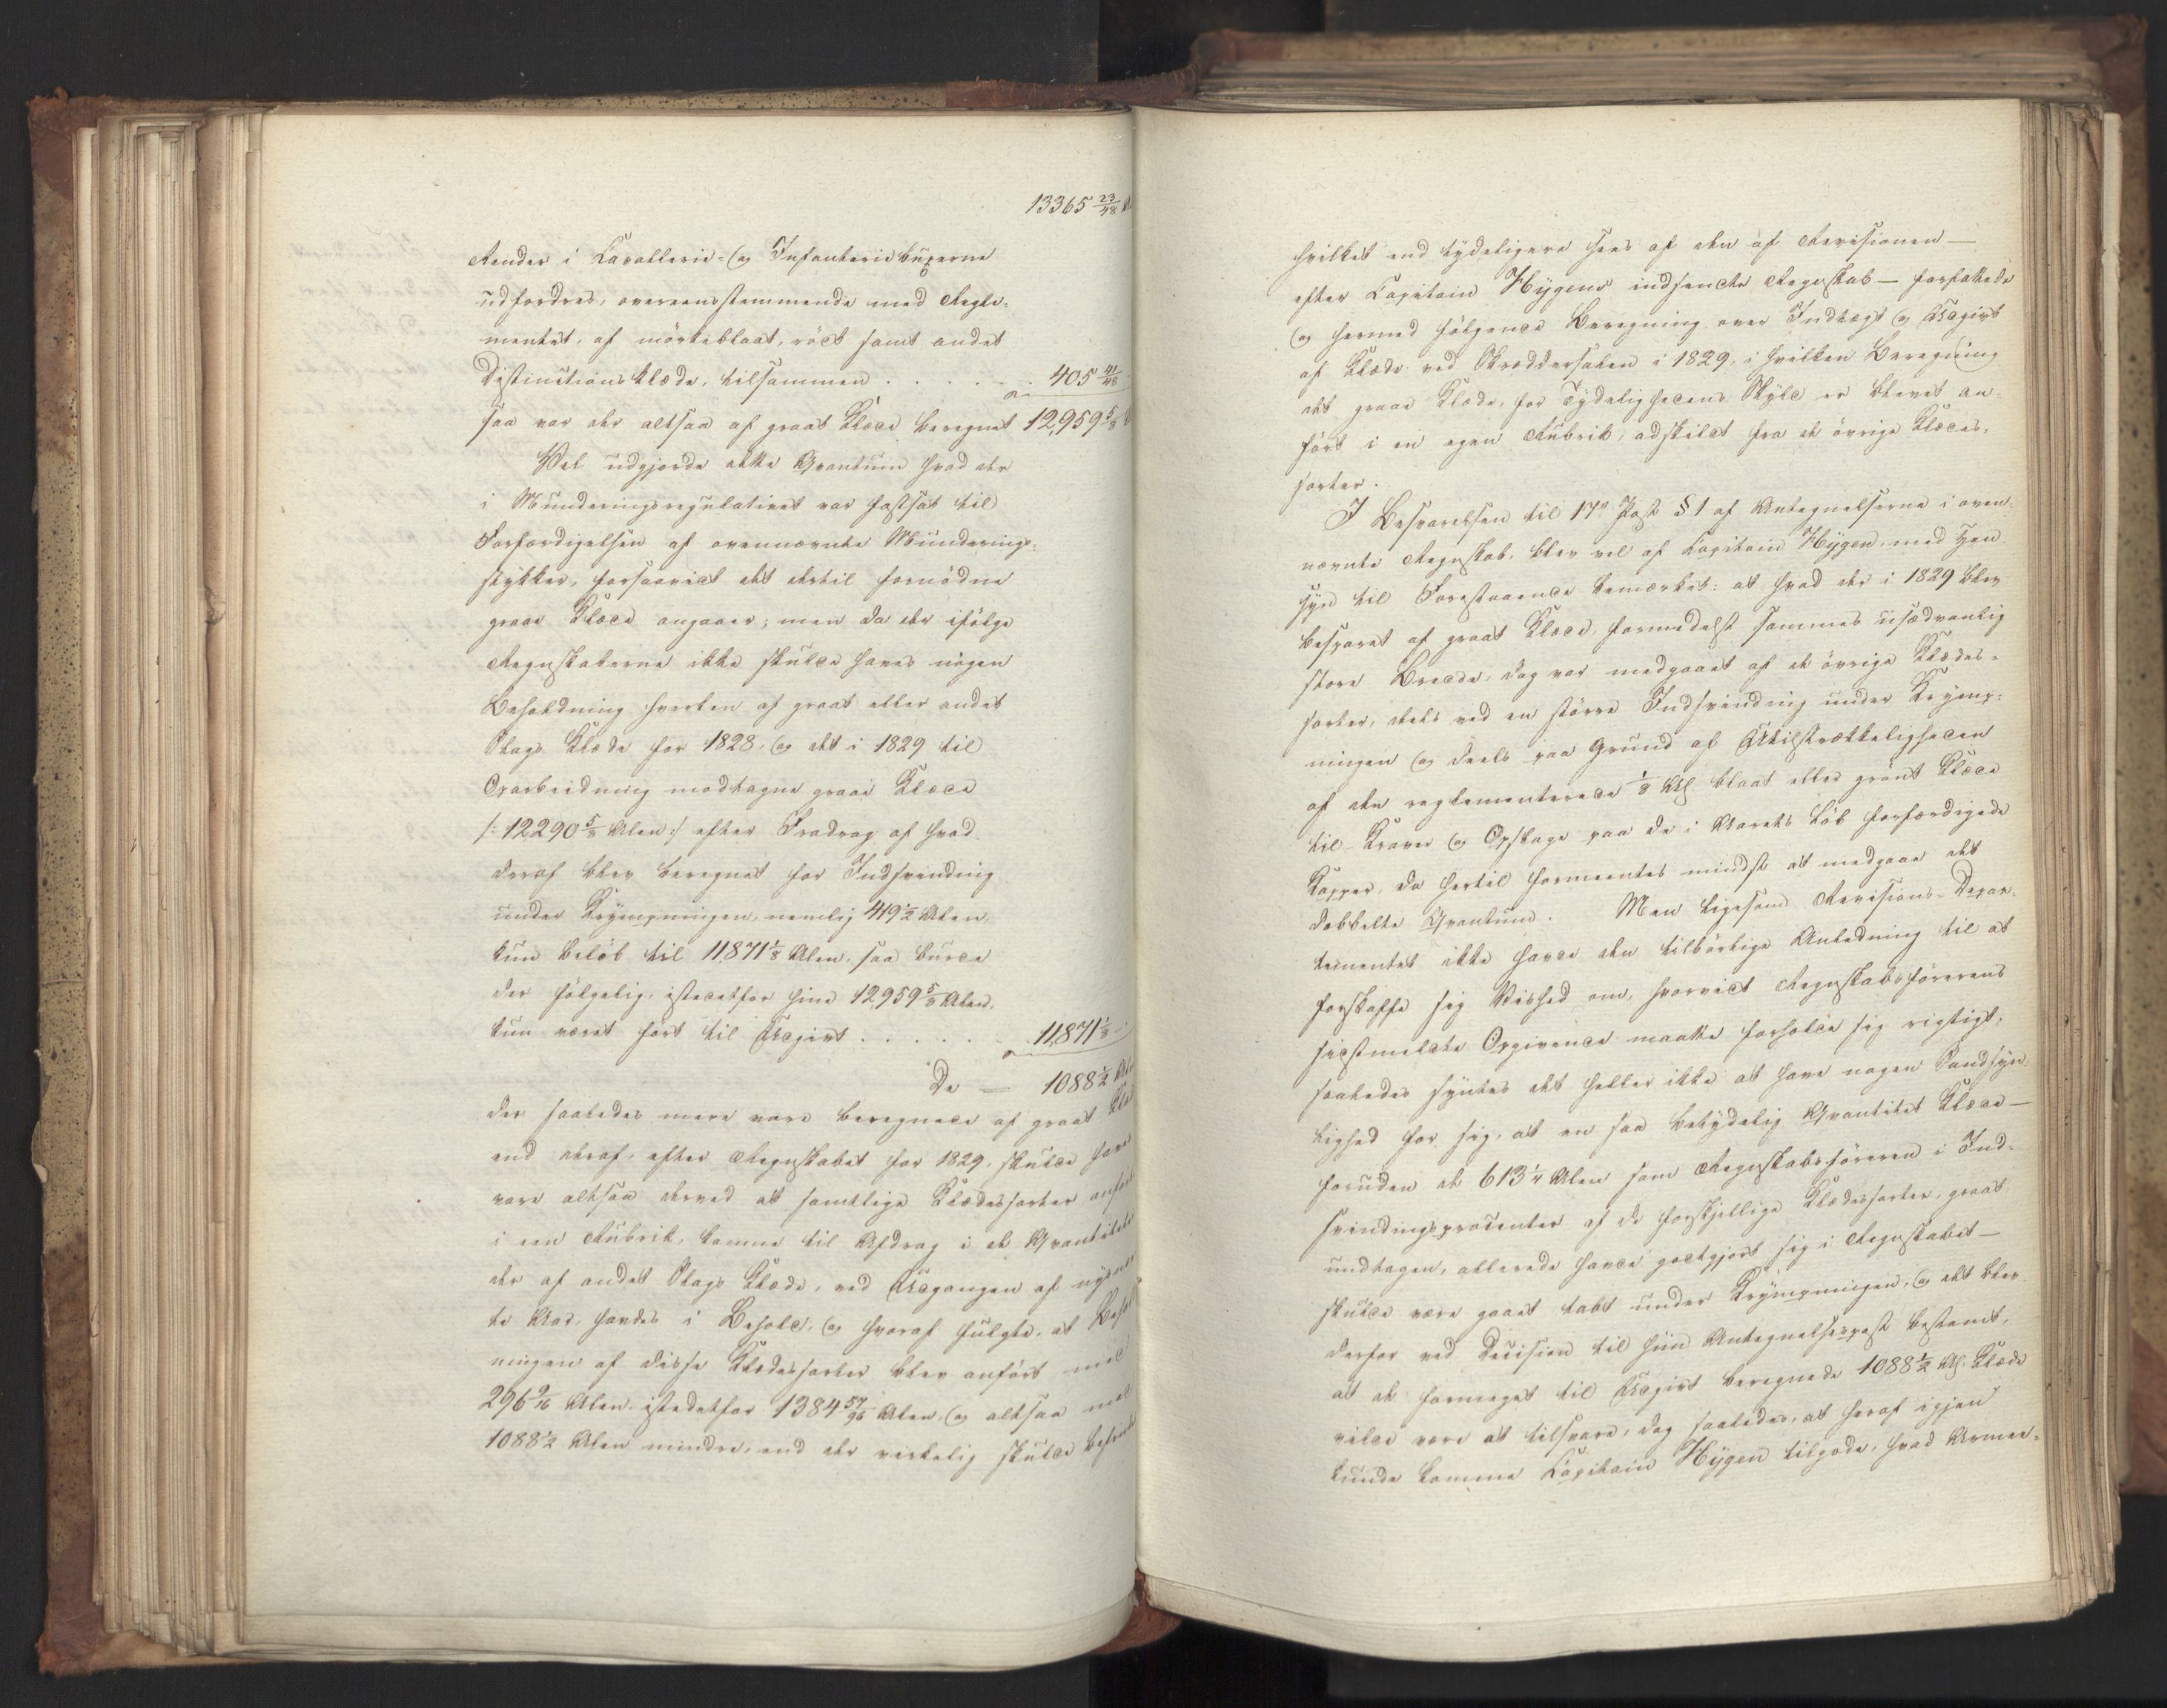 13365 23/48 A
Render i Cavallerie- og Infanteriebuxerne
udfordres, overeensstemmende med Regle-
mentet, af mörkeblaat, rödt samt andet
Distinctionsklæde, tilsammen . . . . . . 405 41/48
saa var der altsaa af graat Klæde beregnet 12,959 5/8
Vel udgjorde dette Qvantum hvad der
i Munderingsregulativet var fastsat til
Forfærdigelsen af ovennævnte Munderings-
stykker, forsaavidt det dertil fornödne
graae Klæde angaaer; men da der ifölge
Regnskaberne ikke skulde haves nogen
Beholdning hverken af graat eller andet
Slags Klæde for 1828, og det i 1829 til
Oparbeidning modtagne graae Klæde
/: 12290 5/8 Alen :/ efter Fradrag af hvad
deraf blev beregnet for Indsvinding
under Krympningen, nemlig 419 1/2 Alen,
kun belöb til 11,871 1/8 Alen, saa burde
der fölgelig, istedetfor hine 12,959 5/8 Alen,
kun været fört til Udgivt . . . . . . 11,871 1/8
De — 1088 1/2 Alen
der saaledes mere vare beregnede af graat Klæ
end deraf, efter Regnskabet for 1829, skulde have
være altsaa derved at samtlige Klædessorter anfört
i een Rubrik, komne til Afdrag i de Qvantiteter
der af andet Slags Klæde, ved Udgangen af nysnævn
te Aar, havdes i Behold, og hvoraf fulgte, at Behold
ningen af disse Klædessorter blev anfört med
296 9/16 Alen istedetfor 1384 57/96 Alen, og altsaa med
1088 1/2 Alen mindre, end der virkelig skulde befindes
hvilket end tydeligere sees af den af Revisionen —
efter Capitain Hÿgens indsendte Regnskab — forfattede
og hermed fölgende Beregning over Indtægt og Udgivt
af Klæde ved Skræddersalen i 1829, i hvilken Beregning
det graae Klæde, for Tydelighedens Skyld er blevet an-
fört i en egen Rubrik, adskilt fra de övrige Klædes-
sorter.
I Besvarelsen til 17de Post § 1 af Antegnelserne i oven-
nævnte Regnskab, blev vel af Capitain Hÿgen, med Hen-
syn til Forestaaende bemærket: at hvad der i 1829 blev
besparet af graat Klæde, formedelst sammes usædvanlig
store Brede, dog var medgaaet af de övrige Klædes-
sorter, deels ved en större Indsvinding under Krymp-
ningen og deels paa Grund af Utilstrækkeligheden
af den reglementerede 1/8 Al. blaat eller grönt Klæde
til Kraver og Opslage paa de i Aarets Löb forfærdigede
Kapper, da hertil formeentes mindst at medgaae det
dobbelte Qvantum. Men ligesom Revisions-Depar-
tementet ikke havde den tilbörlige Anledning til at
forskaffe sig Vished om, hvorvidt Regnskabsförerens
sidstmeldte Opgivende maatte forholde sig rigtigt;
saaledes syntes det heller ikke at have nogen Sandsyn-
lighed for sig, at en saa betydelig Qvantitet Klæde —
foruden de 613 1/4 Alen som Regnskabsföreren i Ind-
svindingsprocenter af de forskjellige Klædessorter, graat
undtagen, allerede havde godtgjort sig i Regnskabet —
skulde være gaaet tabt under Krympningen, og det blev
derfor ved Decision til hiin Antegnelsespost bestemt,
at de formeget til Udgivt beregnede 1088 1/2 Al. Klæde
vilde være at tilsvare, dog saaledes, at heraf igjen
kunde komme Capitain Hÿgen tilgode, hvad Armee-